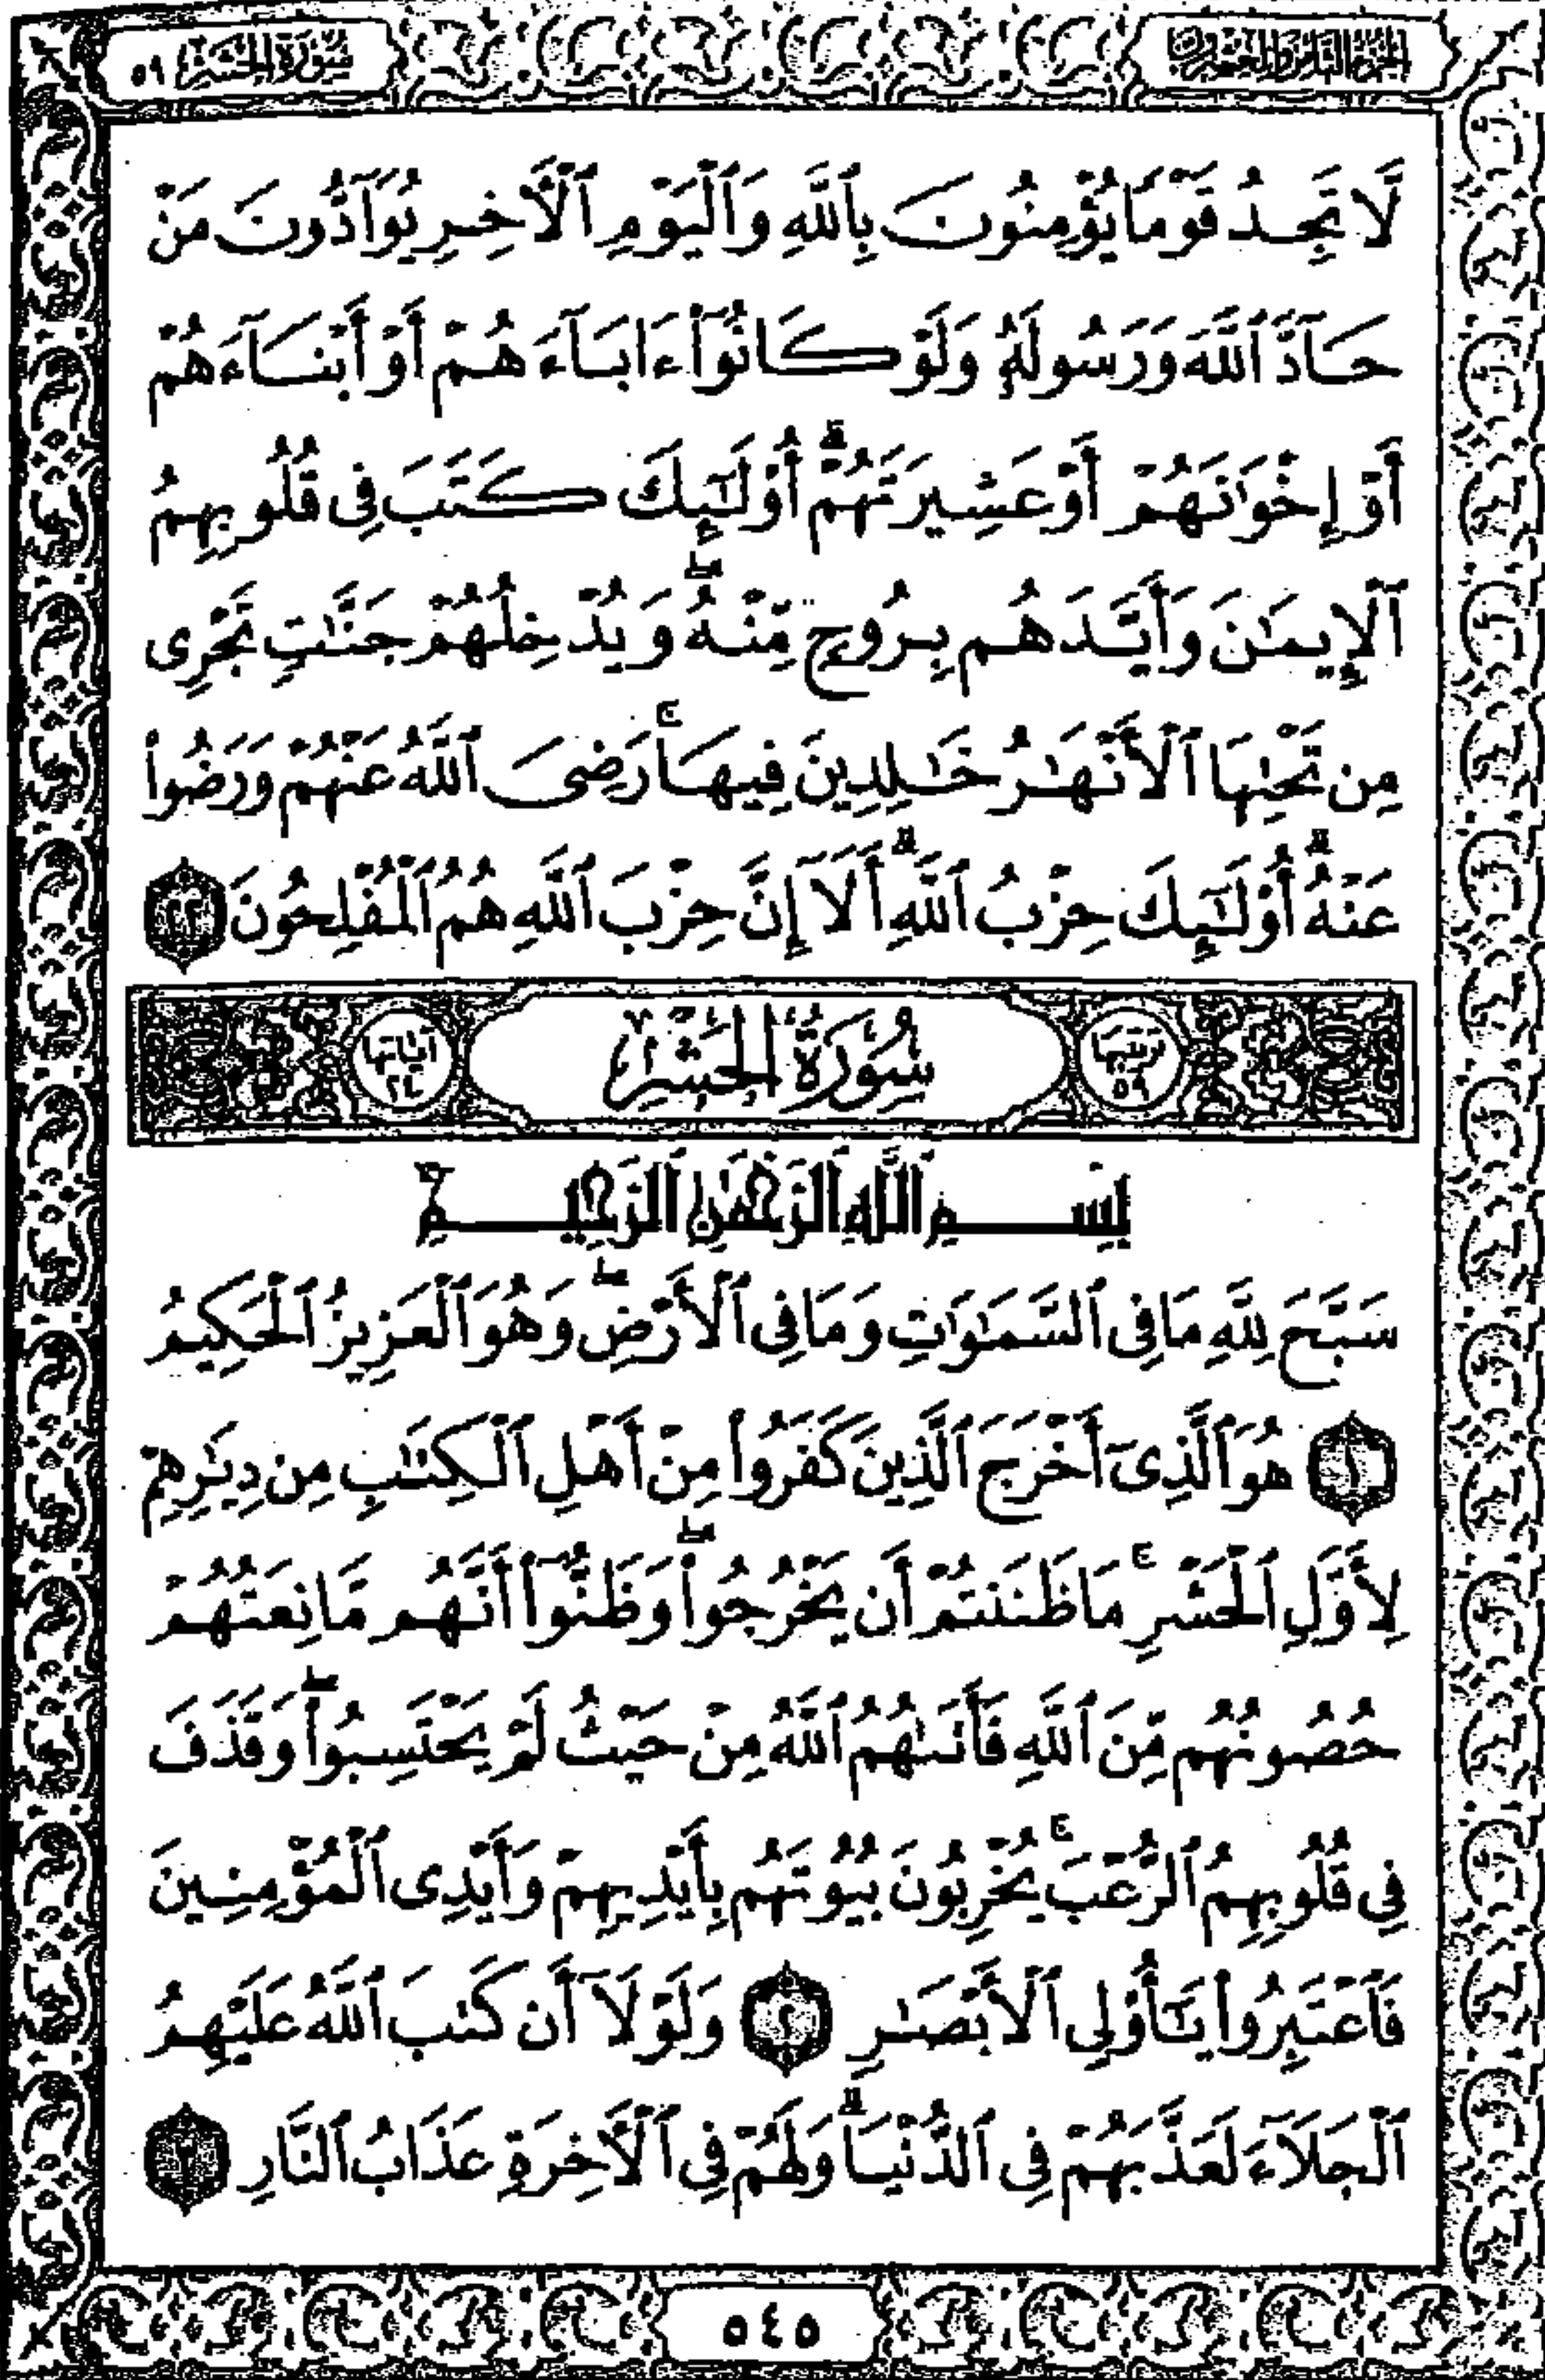 الجزء الثامن والعشرون
سُورَةُ الحَشْرِ ٥٩
لَّا تَجِدُ قَوْمًا يُؤْمِنُونَ بِٱللَّهِ وَٱلْيَوْمِ ٱلْأَخِرِ يُوَآدُّونَ مَنْ
حَآدَّ ٱللَّهَ وَرَسُولَهُۥ وَلَوْ كَانُوٓا۟ ءَابَآءَهُمْ أَوْ أَبْنَآءَهُمْ
أَوْ إِخْوَٰنَهُمْ أَوْ عَشِيرَتَهُمْ ۚ أُو۟لَٰٓئِكَ كَتَبَ فِى قُلُوبِهِمُ
ٱلْإِيمَٰنَ وَأَيَّدَهُم بِرُوحٍ مِّنْهُ ۖ وَيُدْخِلُهُمْ جَنَّٰتٍ تَجْرِى
مِن تَحْتِهَا ٱلْأَنْهَٰرُ خَٰلِدِينَ فِيهَا ۚ رَضِىَ ٱللَّهُ عَنْهُمْ وَرَضُوا۟
عَنْهُ ۚ أُو۟لَٰٓئِكَ حِزْبُ ٱللَّهِ ۚ أَلَآ إِنَّ حِزْبَ ٱللَّهِ هُمُ ٱلْمُفْلِحُونَ ٢٢
ترتيبها ٥٩
سُورَةُ الحَشْرِ
آياتها ٢٤
بِسْمِ ٱللَّهِ ٱلرَّحْمَٰنِ ٱلرَّحِيمِ
سَبَّحَ لِلَّهِ مَا فِى ٱلسَّمَٰوَٰتِ وَمَا فِى ٱلْأَرْضِ ۖ وَهُوَ ٱلْعَزِيزُ ٱلْحَكِيمُ
١ هُوَ ٱلَّذِىٓ أَخْرَجَ ٱلَّذِينَ كَفَرُوا۟ مِنْ أَهْلِ ٱلْكِتَٰبِ مِن دِيَٰرِهِمْ
لِأَوَّلِ ٱلْحَشْرِ ۚ مَا ظَنَنتُمْ أَن يَخْرُجُوا۟ ۖ وَظَنُّوٓا۟ أَنَّهُم مَّانِعَتُهُمْ
حُصُونُهُم مِّنَ ٱللَّهِ فَأَتَىٰهُمُ ٱللَّهُ مِنْ حَيْثُ لَمْ يَحْتَسِبُوا۟ ۖ وَقَذَفَ
فِى قُلُوبِهِمُ ٱلرُّعْبَ ۚ يُخْرِبُونَ بُيُوتَهُم بِأَيْدِيهِمْ وَأَيْدِى ٱلْمُؤْمِنِينَ
فَٱعْتَبِرُوا۟ يَٰٓأُو۟لِى ٱلْأَبْصَٰرِ ٢ وَلَوْلَآ أَن كَتَبَ ٱللَّهُ عَلَيْهِمُ
ٱلْجَلَآءَ لَعَذَّبَهُمْ فِى ٱلدُّنْيَا ۖ وَلَهُمْ فِى ٱلْأَخِرَةِ عَذَابُ ٱلنَّارِ ٣
٥٤٥